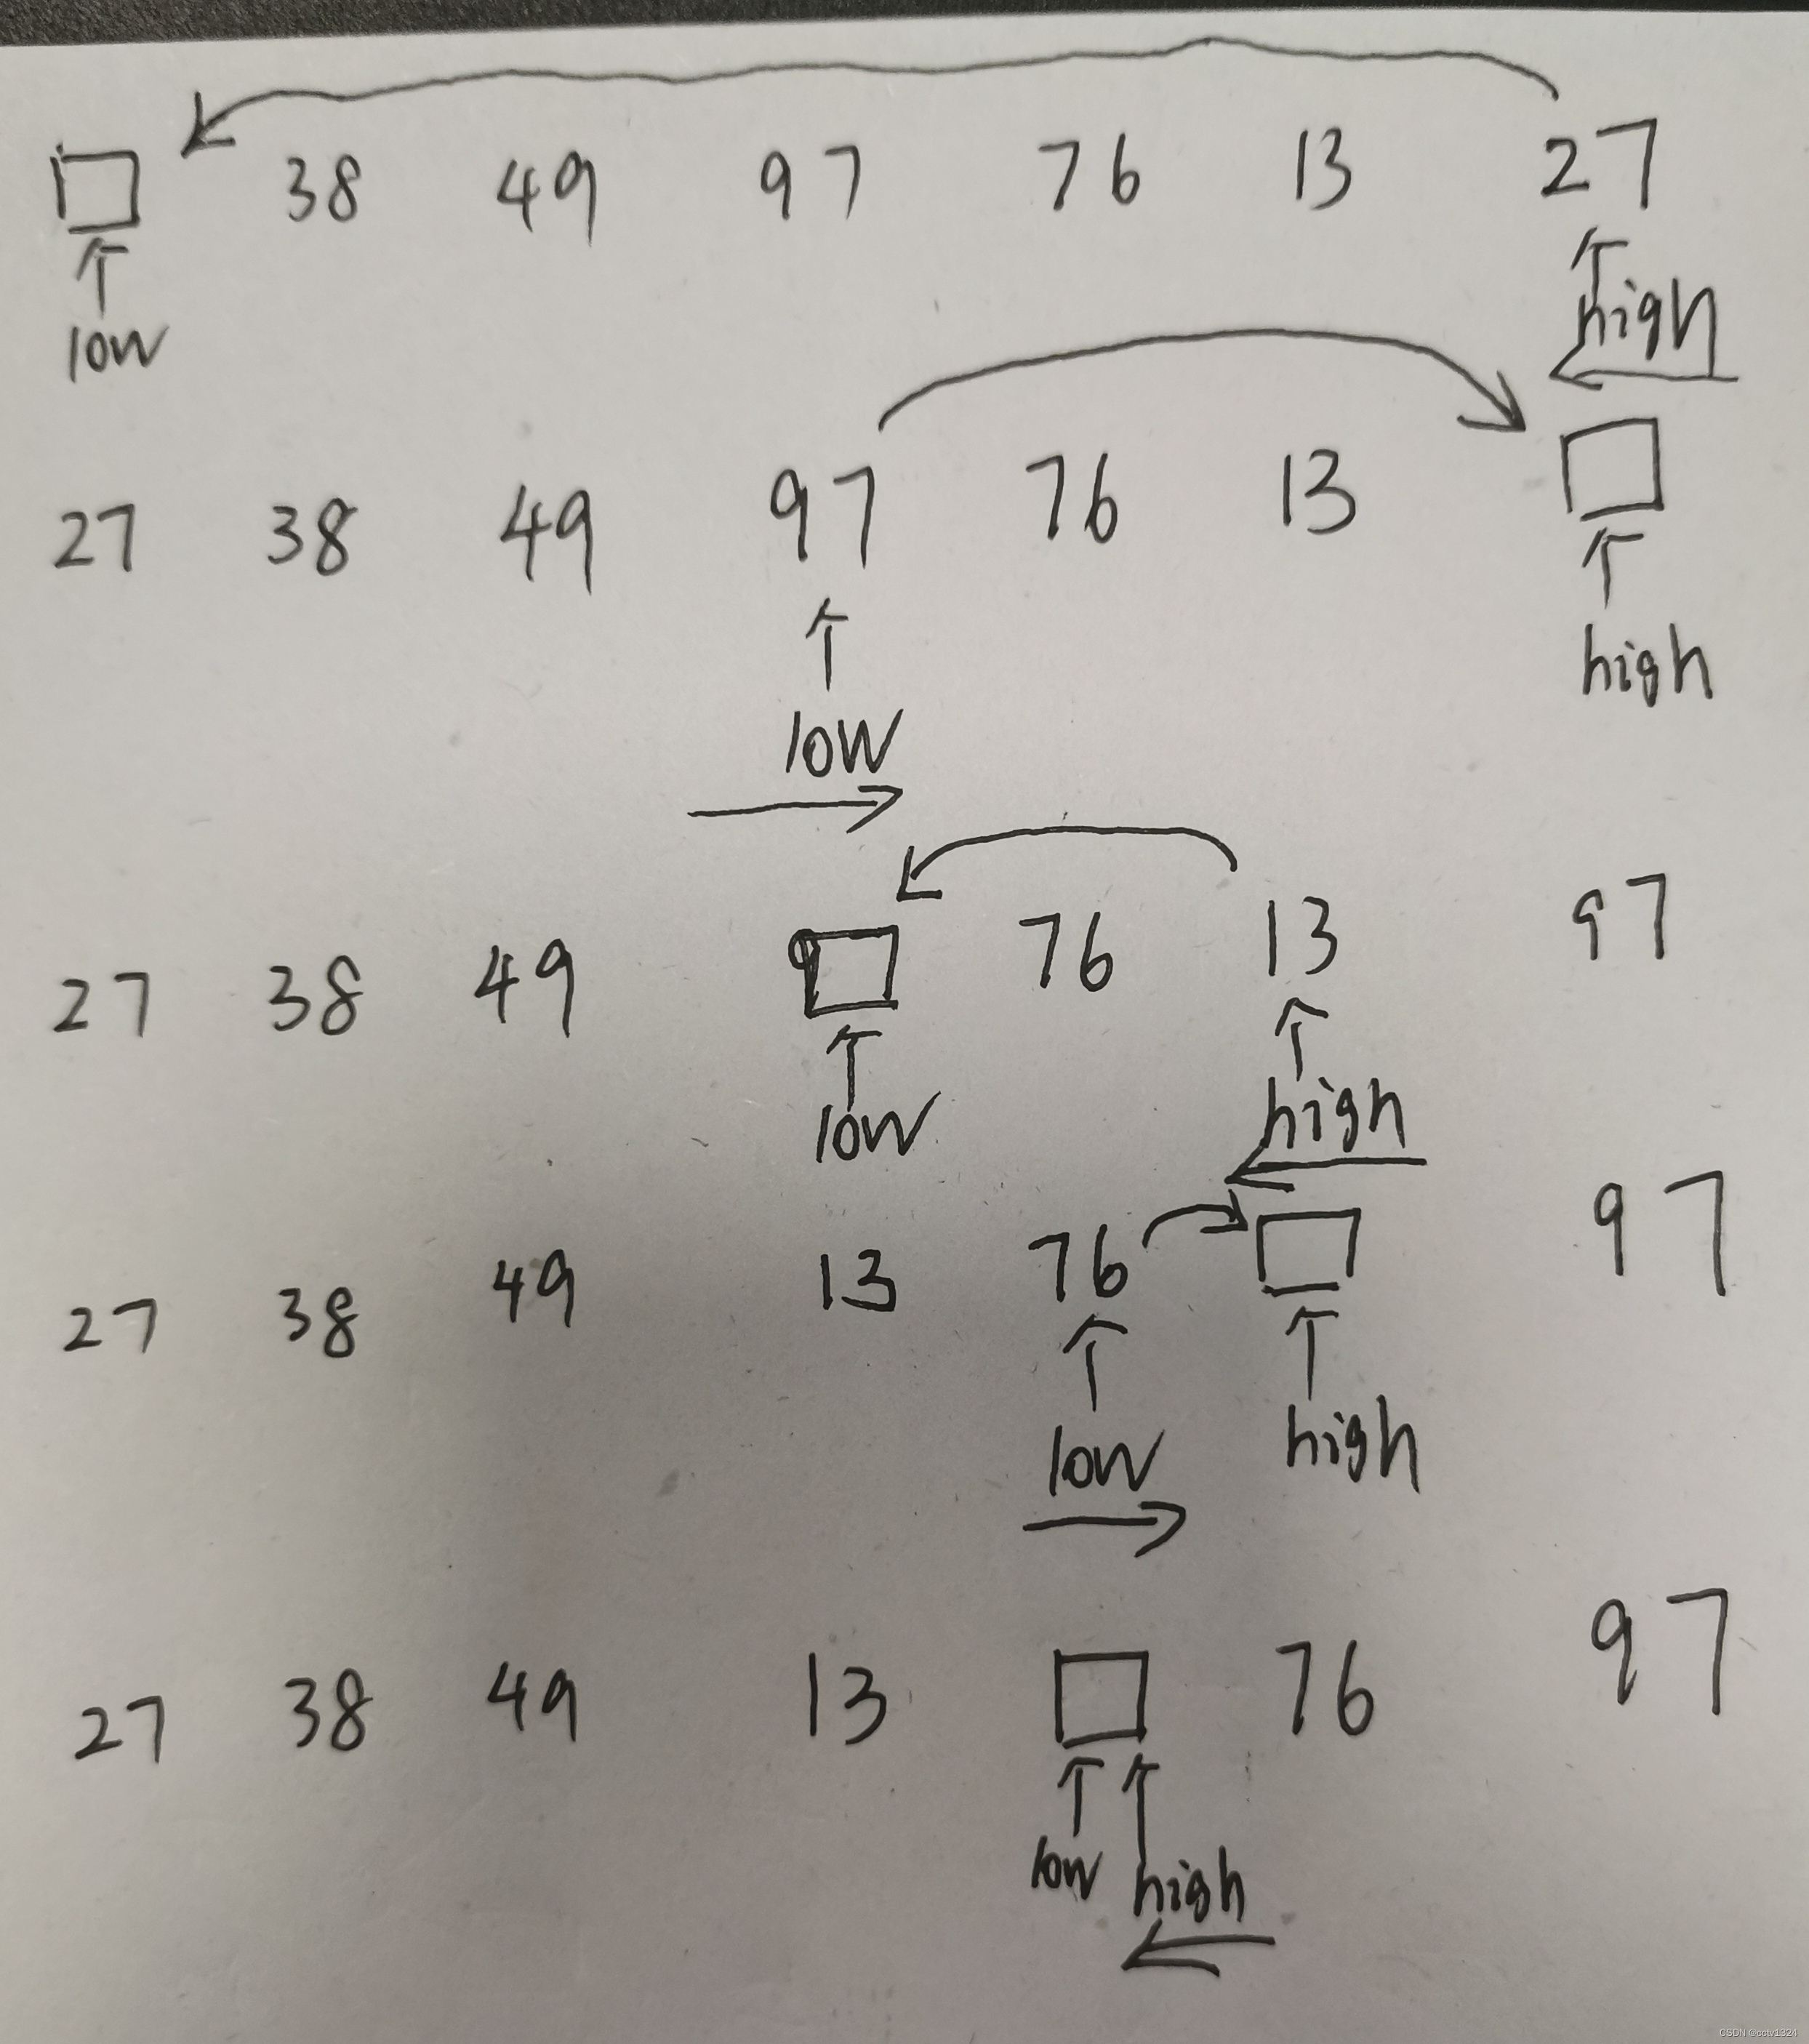 38 49 97 76 13 27
low high
27 38 49 97 76 13
low high
27 38 49 76 13 97
low high
27 38 49 13 76 97
low high
27 38 49 13 76 97
low high
CSDN @cctv1324